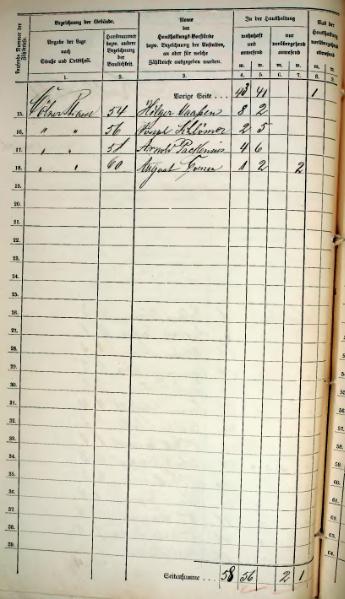 Laufende Nummer der Zählbriefe.
Bezeichnung der Gebäude.
Angabe der Lage nach Straße und Ortstheil.
1.
Hausnummer bezw. andere Bezeichnung der Baulichkeit.
2.
Name der Haushaltungs-Vorstände bezw. Bezeichnung der Anstalten, an oder für welche Zählbriefe ausgegeben wurden.
3.
In der Haushaltung
wohnhaft und anwesend
nur vorübergehend anwesend
m. w. m. w.
4. 5. 6. 7.
Aus der Haushaltung vorübergehend abwesend
m. w.
8. 9.
Vorige Seite . . . 43 41 1
15. Cölner Strasse 54 Holger 8 2
16. " " 56 Josef Klömer 2 5
17. " " 58 Arnold Packenius 4 6
18. " " 60 August 1 2 2
19.
20.
21.
22.
23.
24.
25.
26.
27.
28.
29.
30.
31.
32.
33.
34.
35.
36.
37.
38.
39.
Seitensumme . . . 58 56 2 1